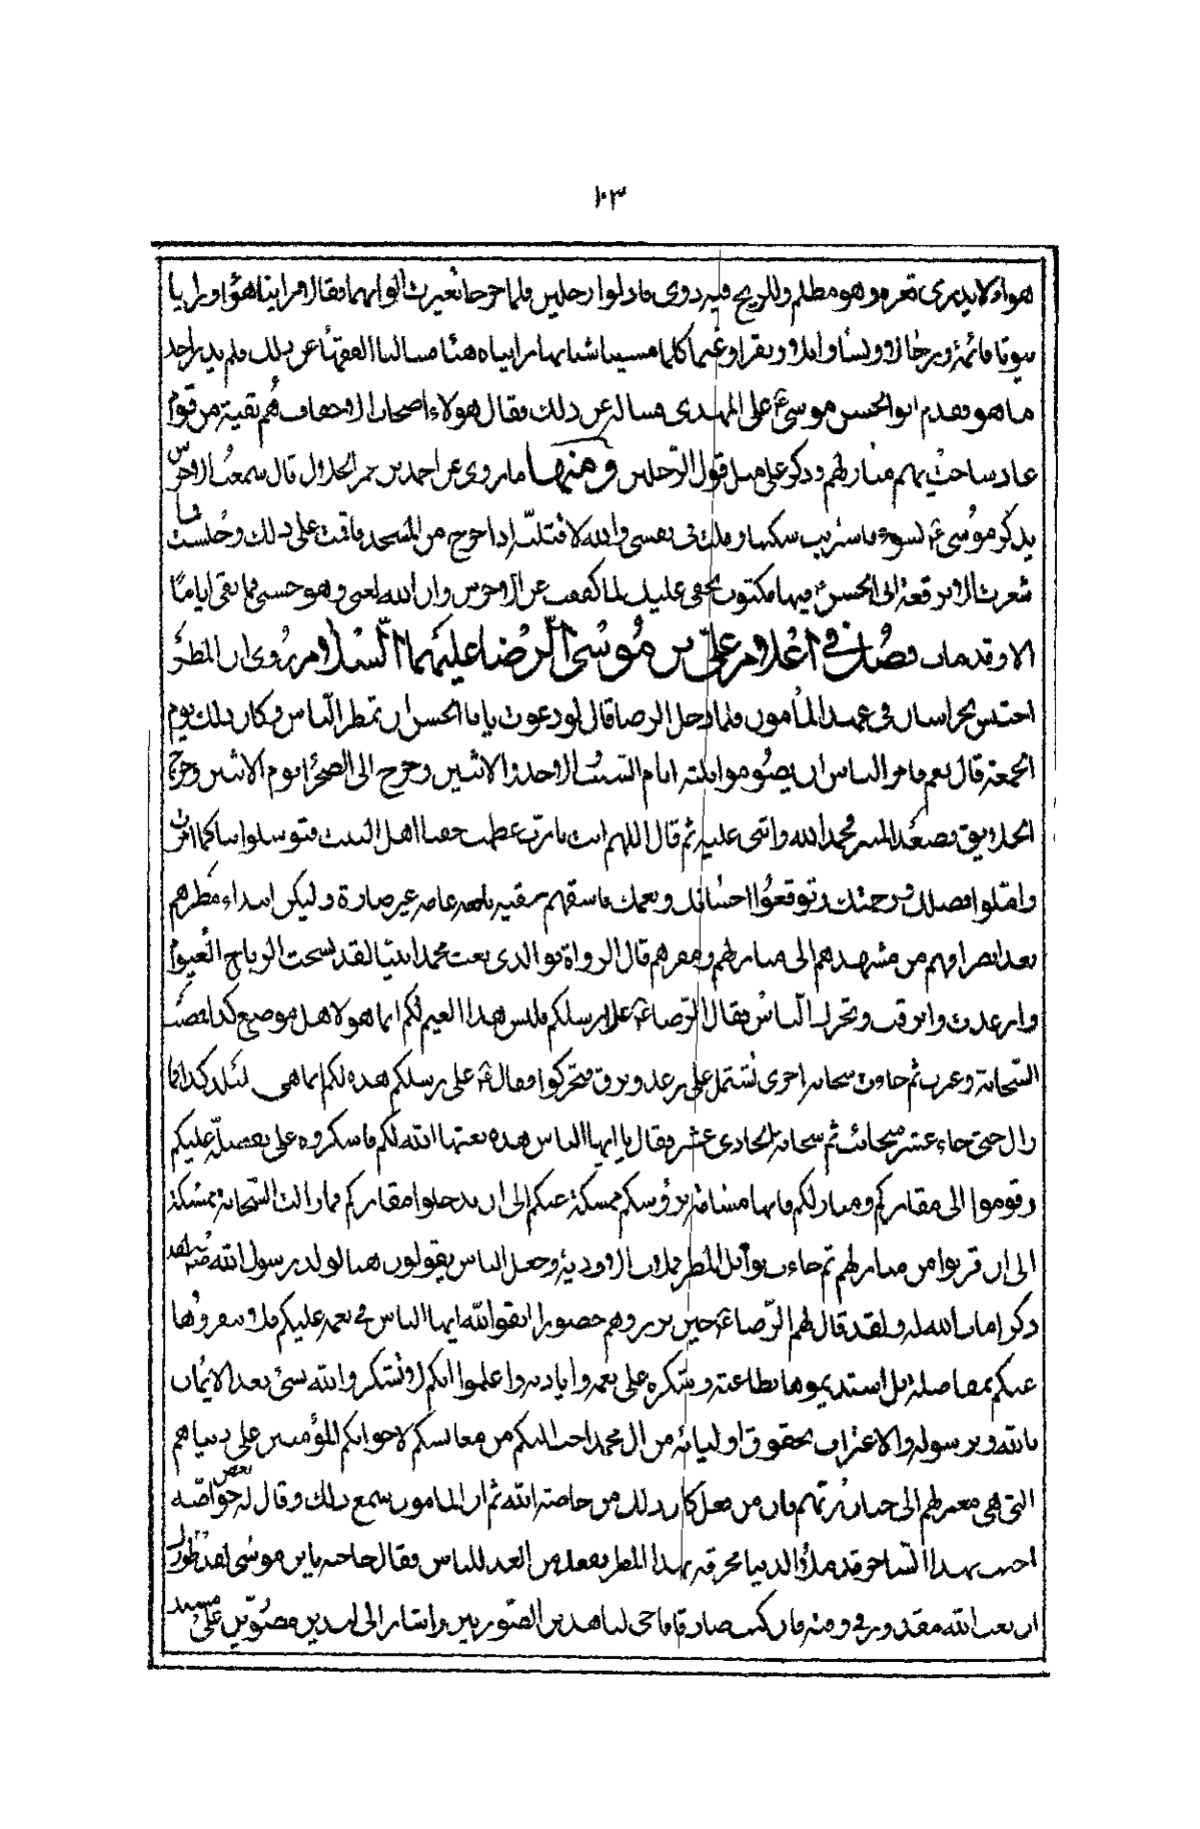 ١٠٣
هواء لا يدرى قعره وهو مظلم وللريح فيه دوى فادلوا رجلين فلما خرجا تغيرت الوانهما فقالا راينا هواء وراينا
بيوتا قائمة ورجالا ونساء وابلا وبقرا وغنما كلما مسسنا شيئا منها رايناه هباء فسالنا الفقهاء عن ذلك فلم يدر احد
ما هو فقدم ابو الحسن موسى ع على المهدى فساله عن ذلك فقال هولاء اصحاب الاحقاف هم بقية من قوم
عاد ساخت بهم منازلهم وذكر على مثل قول الرجلين ومنها ما روى عن احمد بن عمر الحلال قال سمعت الاخرس
يذكر موسى ع بسوء فاشتريت سكينا وقلت فى نفسى والله لاقتلنه اذا خرج من المسجد فاقمت على ذلك وجلست فما
شعرت الا برقعة ابى الحسن ع فيها مكتوب بحقى عليك لما كففت عن الاخرس وان الله ثقتى وهو حسبى فما بقى اياما
الا وقد مات فصل فى اعلام على بن موسى الرضا عليهما السلام روى ان المطر
احتبس بخراسان فى عهد المامون فلما دخل الرضا قال لو دعوت يا ابا الحسن ان تمطر الناس وكان ذلك يوم
الجمعة قال نعم فامر الناس ان يصوموا ثلثة ايام السبت الاحد والاثنين وخرج الى الصحراء يوم الاثنين وخرج
الخلايق فصعد المنبر فحمد الله واثنى عليه ثم قال اللهم انت يا رب عظمت حقنا اهل البيت فتوسلوا بنا كما امرت
واملوا فضلك ورحمتك وتوقعوا احسانك ونعمك فاسقهم سقيا نافعة عامة غير ضارة وليكن ابتداء مطرهم
بعد انصرافهم من مشهدهم الى منازلهم ومقرهم قال الرواة فو الذى بعث محمدا نبيا لقد نسجت الرياح الغيوم
وارعدت وابرقت وتحرك الناس فقال الرضا ع على رسلكم فليس هذا الغيم لكم انما هو لاهل موضع كذا فمضت
السحابة وعبرت ثم جاءت سحابة اخرى تشتمل على رعد وبرق فتحركوا فقال ع على رسلكم هذه لكم انما هى لبلد كذا فما
زال حتى جاءت عشر سحائب ثم سحابة الحادى عشر فقال يا ايها الناس هذه بعثها الله لكم فاشكروه على تفضله عليكم
وقوموا الى مقاركم ومنازلكم فانها مسامتة لرؤسكم ممسكة عنكم الى ان تدخلوا مقاركم فما زالت السحابة ممسكة
الى ان قربوا من منازلهم ثم جاءت بوابل المطر فملات الاودية وجعل الناس يقولون هنيئا لولد رسول الله ص
ذكرامات الله له ولقد قال لهم الرضا ع حين برز وهم حضور اتقوا الله ايها الناس فى نعمه عليكم فلا تنفروها
عنكم بمعاصيه بل استديموها بطاعته وبشكره على نعمه واياديه واعلموا انكم لا تشكروا الله بشئ بعد الايمان
بالله وبرسوله والاعتراف بحقوق اوليائه من ال محمد احب اليكم من معاونتكم لاخوانكم المؤمنين على دنياهم
التى هى معبر لهم الى جنان ربهم فان من فعل كان ذلك من خاصة الله ثم ان المامون سمع ذلك وقال له بعض خواصه
جئت بهذا الساحر وقد ملا الدنيا مخرقة بهذا المطر فعقد من الغد للناس فقال حاجبه يابن موسى لقد عدوت طورك
ان بعث الله مقدور فى وقته فان كنت صادقا فاحى لنا هذين الصورتين واشار الى اسدين مصورين على مسند